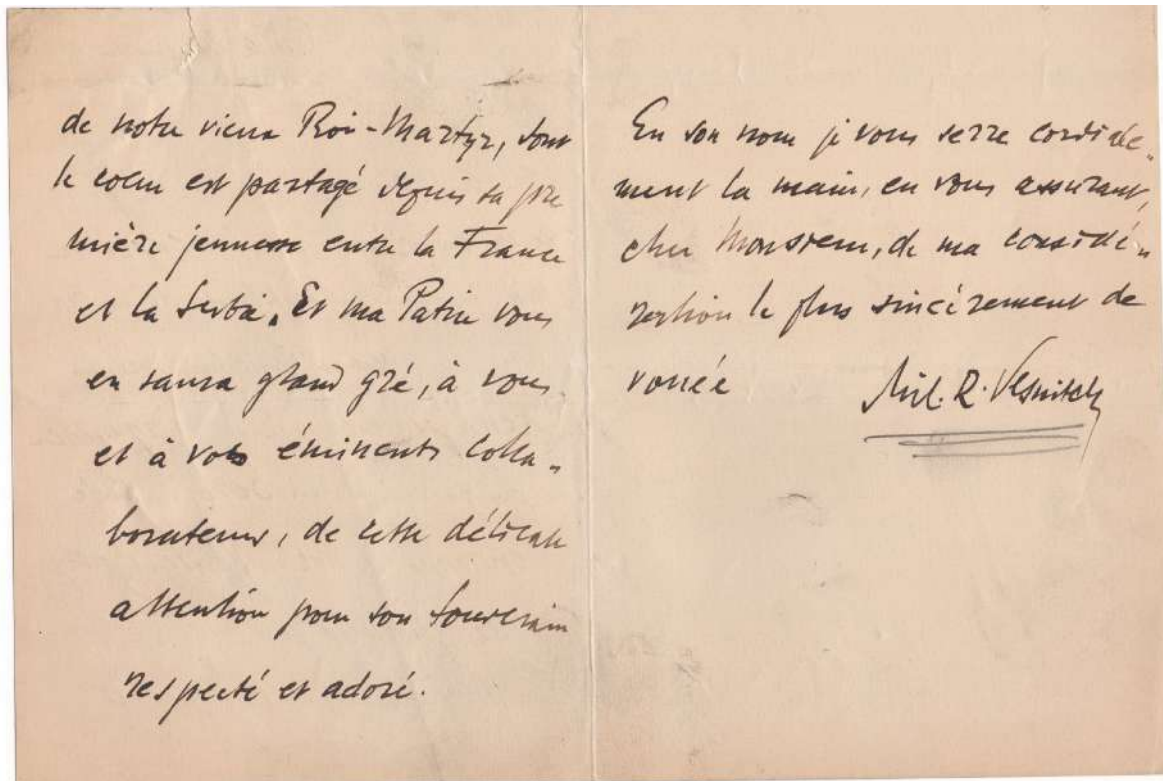 de notre vieux Roi-Martyr, dont
le coeur est partagé depuis sa pre
mière jeunesse entre la France
et la Serbie. Et ma Patrie vous
en saura grand gré, à vous
et à vos éminents colla-
borateurs, de cette délicate
attention pour son souverain
respecté et adoré.
En son nom je vous serre cordiale-
ment la main, en vous assurant,
cher Monsieur, de ma considé-
ration la plus sincèrement dé
vouée
Mil. R. Vesnitch